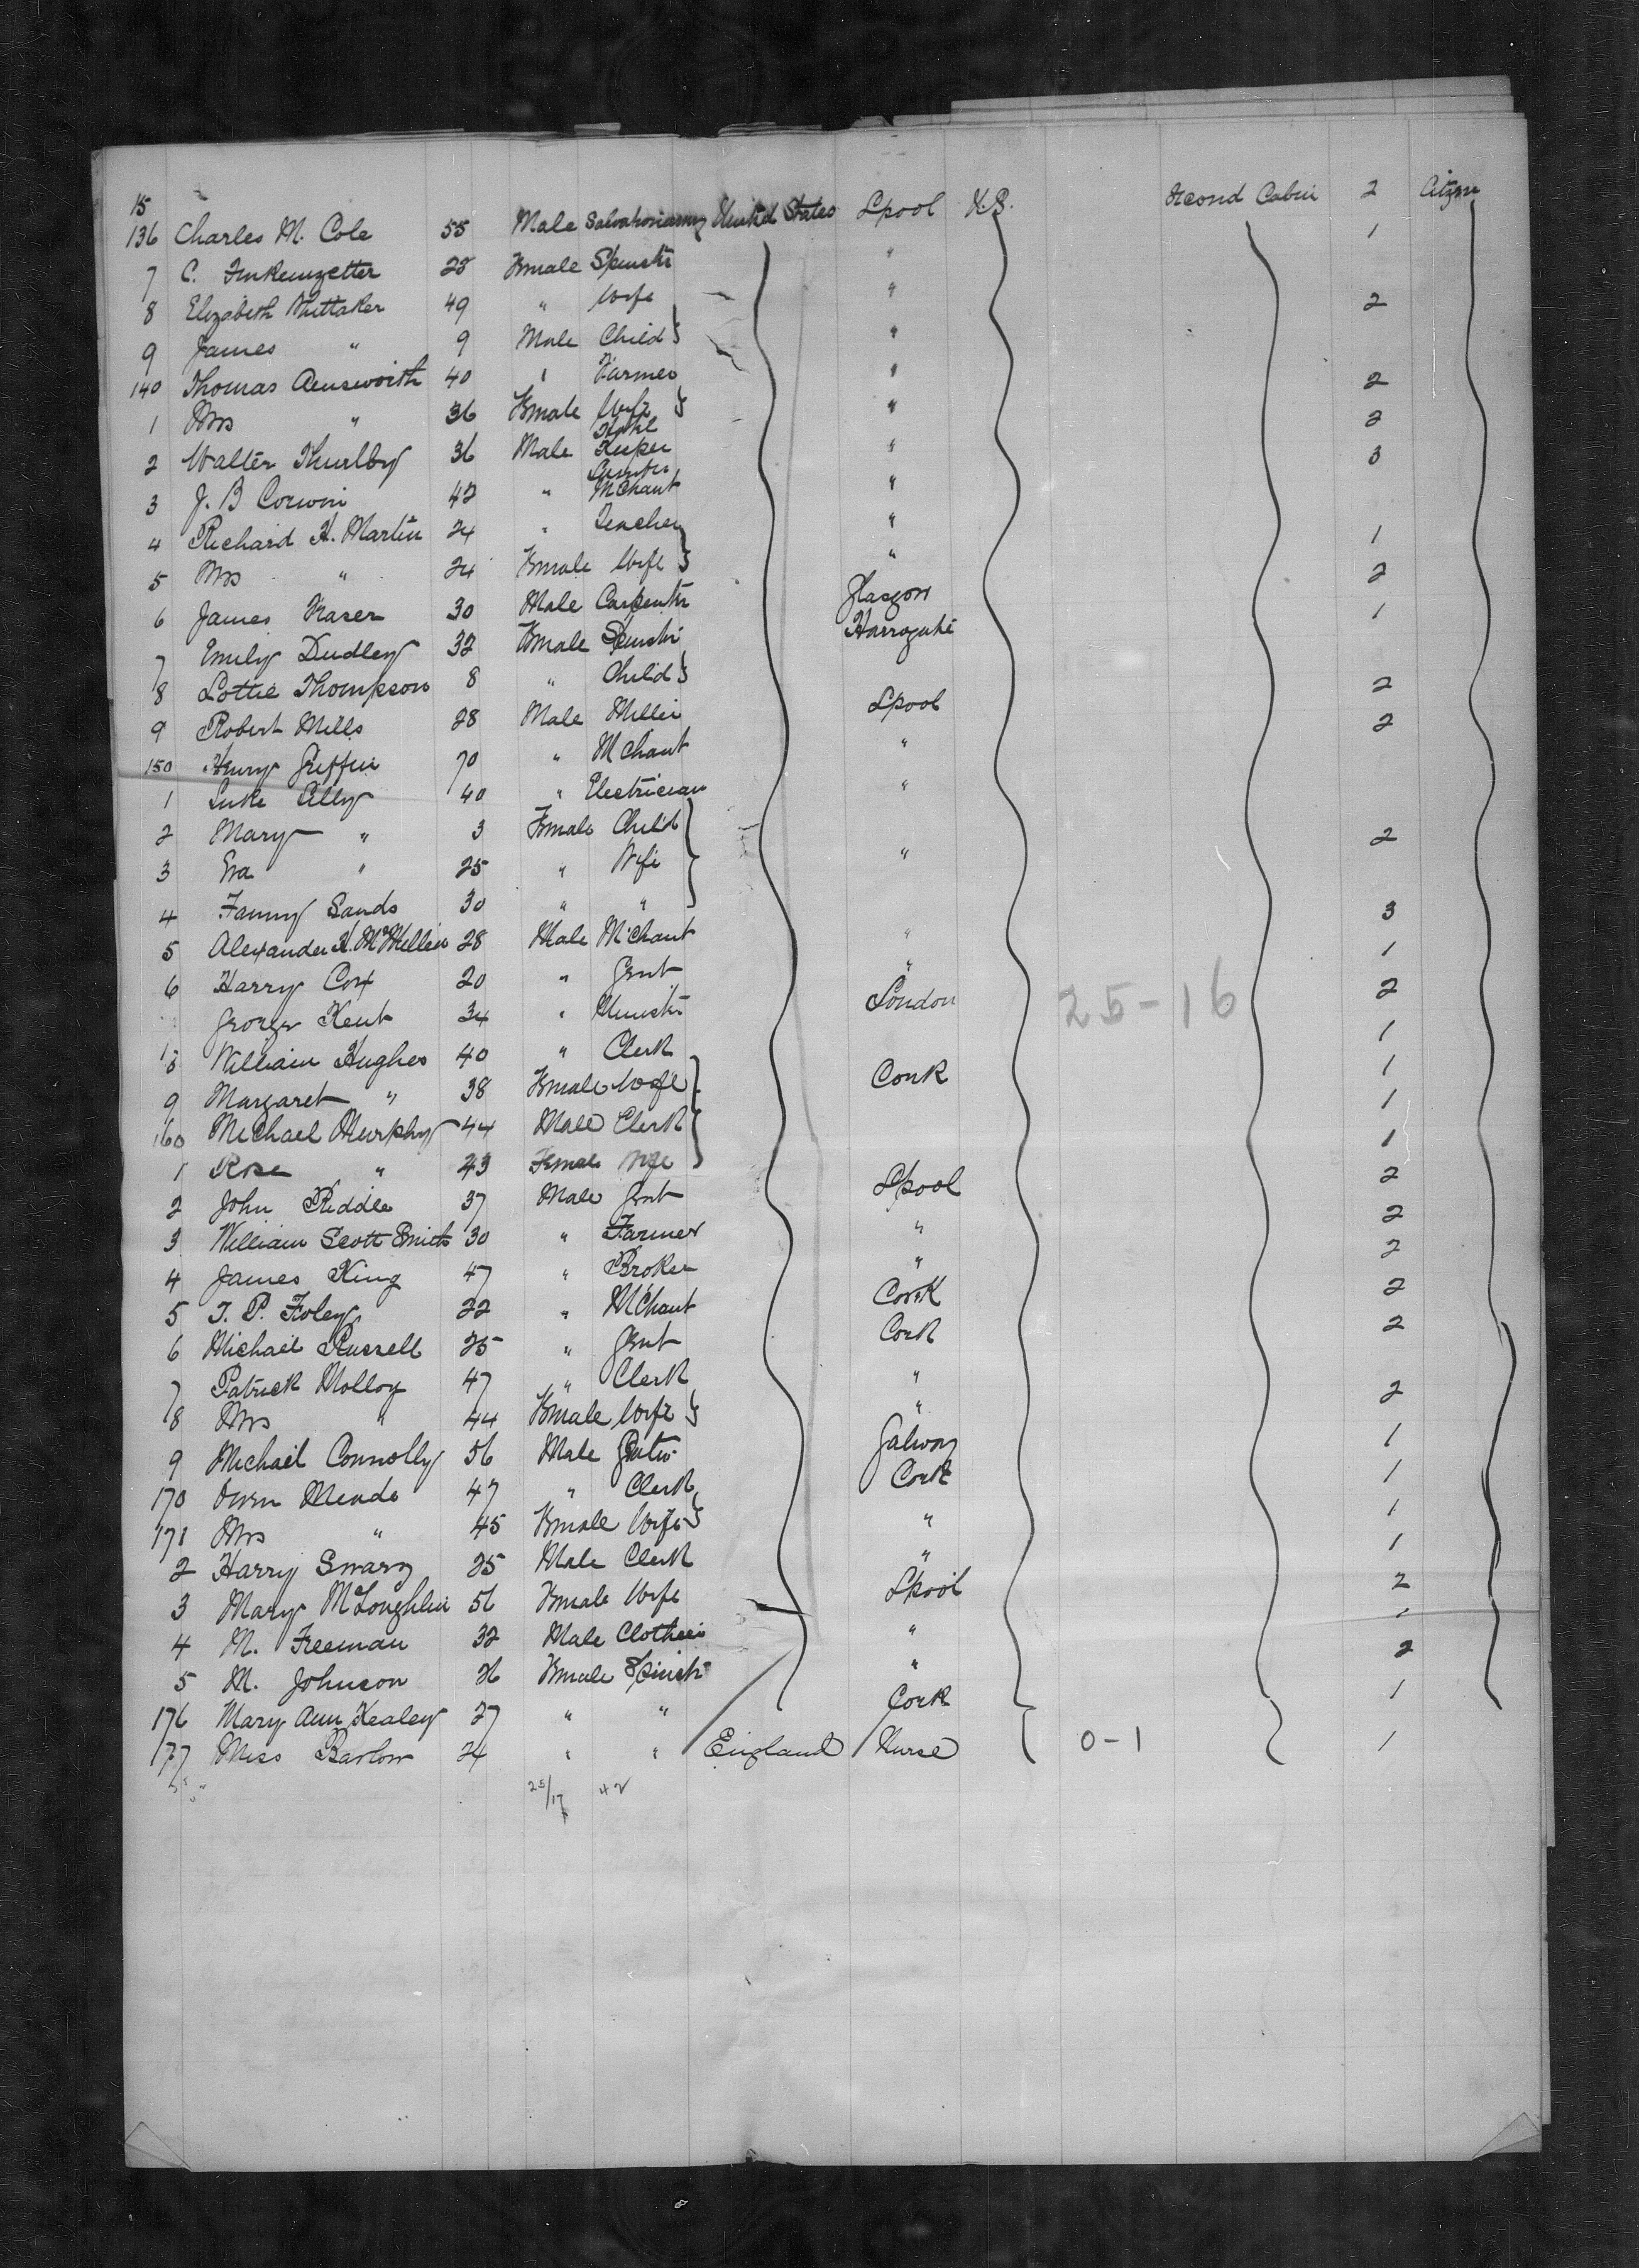 15
136 Charles M. Cole 55 Male Salvationarmy United States Lpool U.S. Second Cabin 2 Citizen
7 C. 28 Female Spinstr " 1
8 Elizabeth Whittaker 49 " Wife "
9 James " 9 Male Child " 2
140 Thomas Ainsworth 40 " Farmer "
1 Mrs " 36 Female Wife " 2
2 Walter Thurlby 36 Male Hotel Keeper " 2
3 J. B Corwin 42 " Lumber MChant " 3
4 Richard H. Martin 24 " Teacher "
5 Mrs " 24 Female Wife " 1
6 James Fraser 30 Male Carpentr Glasgow 2
7 Emily Dudley 32 Female Spinstr Harrogate 1
8 Lottie Thompson 8 " Child
9 Robert Mills 28 Male Miller Lpool 2
150 Henry Griffin 70 " MChant " 2
1 Luke 40 " Electrician "
2 Mary " 3 Female Child
3 Eva " 25 " Wife " 2
4 Fanny Sands 30 " "
5 Alexander H. McMillen 28 Male MChant " 3
6 Harry Cox 20 " Gent " 1
George Kent 34 " London 2
8 William Hughes 40 " Clerk 1
9 Margaret " 38 Female Wife Cork 1
160 Michael Murphy 44 Male Clerk 1
1 Rose " 43 Female Wife 1
2 John Riddle 37 Male Gent Lpool 2
3 William Scott Smith 30 " Farmer " 2
4 James King 47 " Broker " 2
5 T. P. Foley 22 " MChant Cork 2
6 Michael Russell 25 " Gent Cork 2
7 Patrick Molloy 47 " Clerk "
8 Mrs " 44 Female Wife " 2
9 Michael Connolly 56 Male Galway 1
170 Owen Meade 47 " Clerk Cork 1
171 Mrs " 45 Female Wife " 1
2 Harry 25 Male Clerk " 1
3 Mary McLoughlin 56 Female Wife Lpool 2
4 M. Freeman 32 Male Clothier " 1
5 M. Johnson 26 Female Spinstr " 2
176 Mary Ann Kealey 27 " " Cork 1
177 Miss Barlow 24 " " England Nurse 0-1 1
25-16
25/17 42